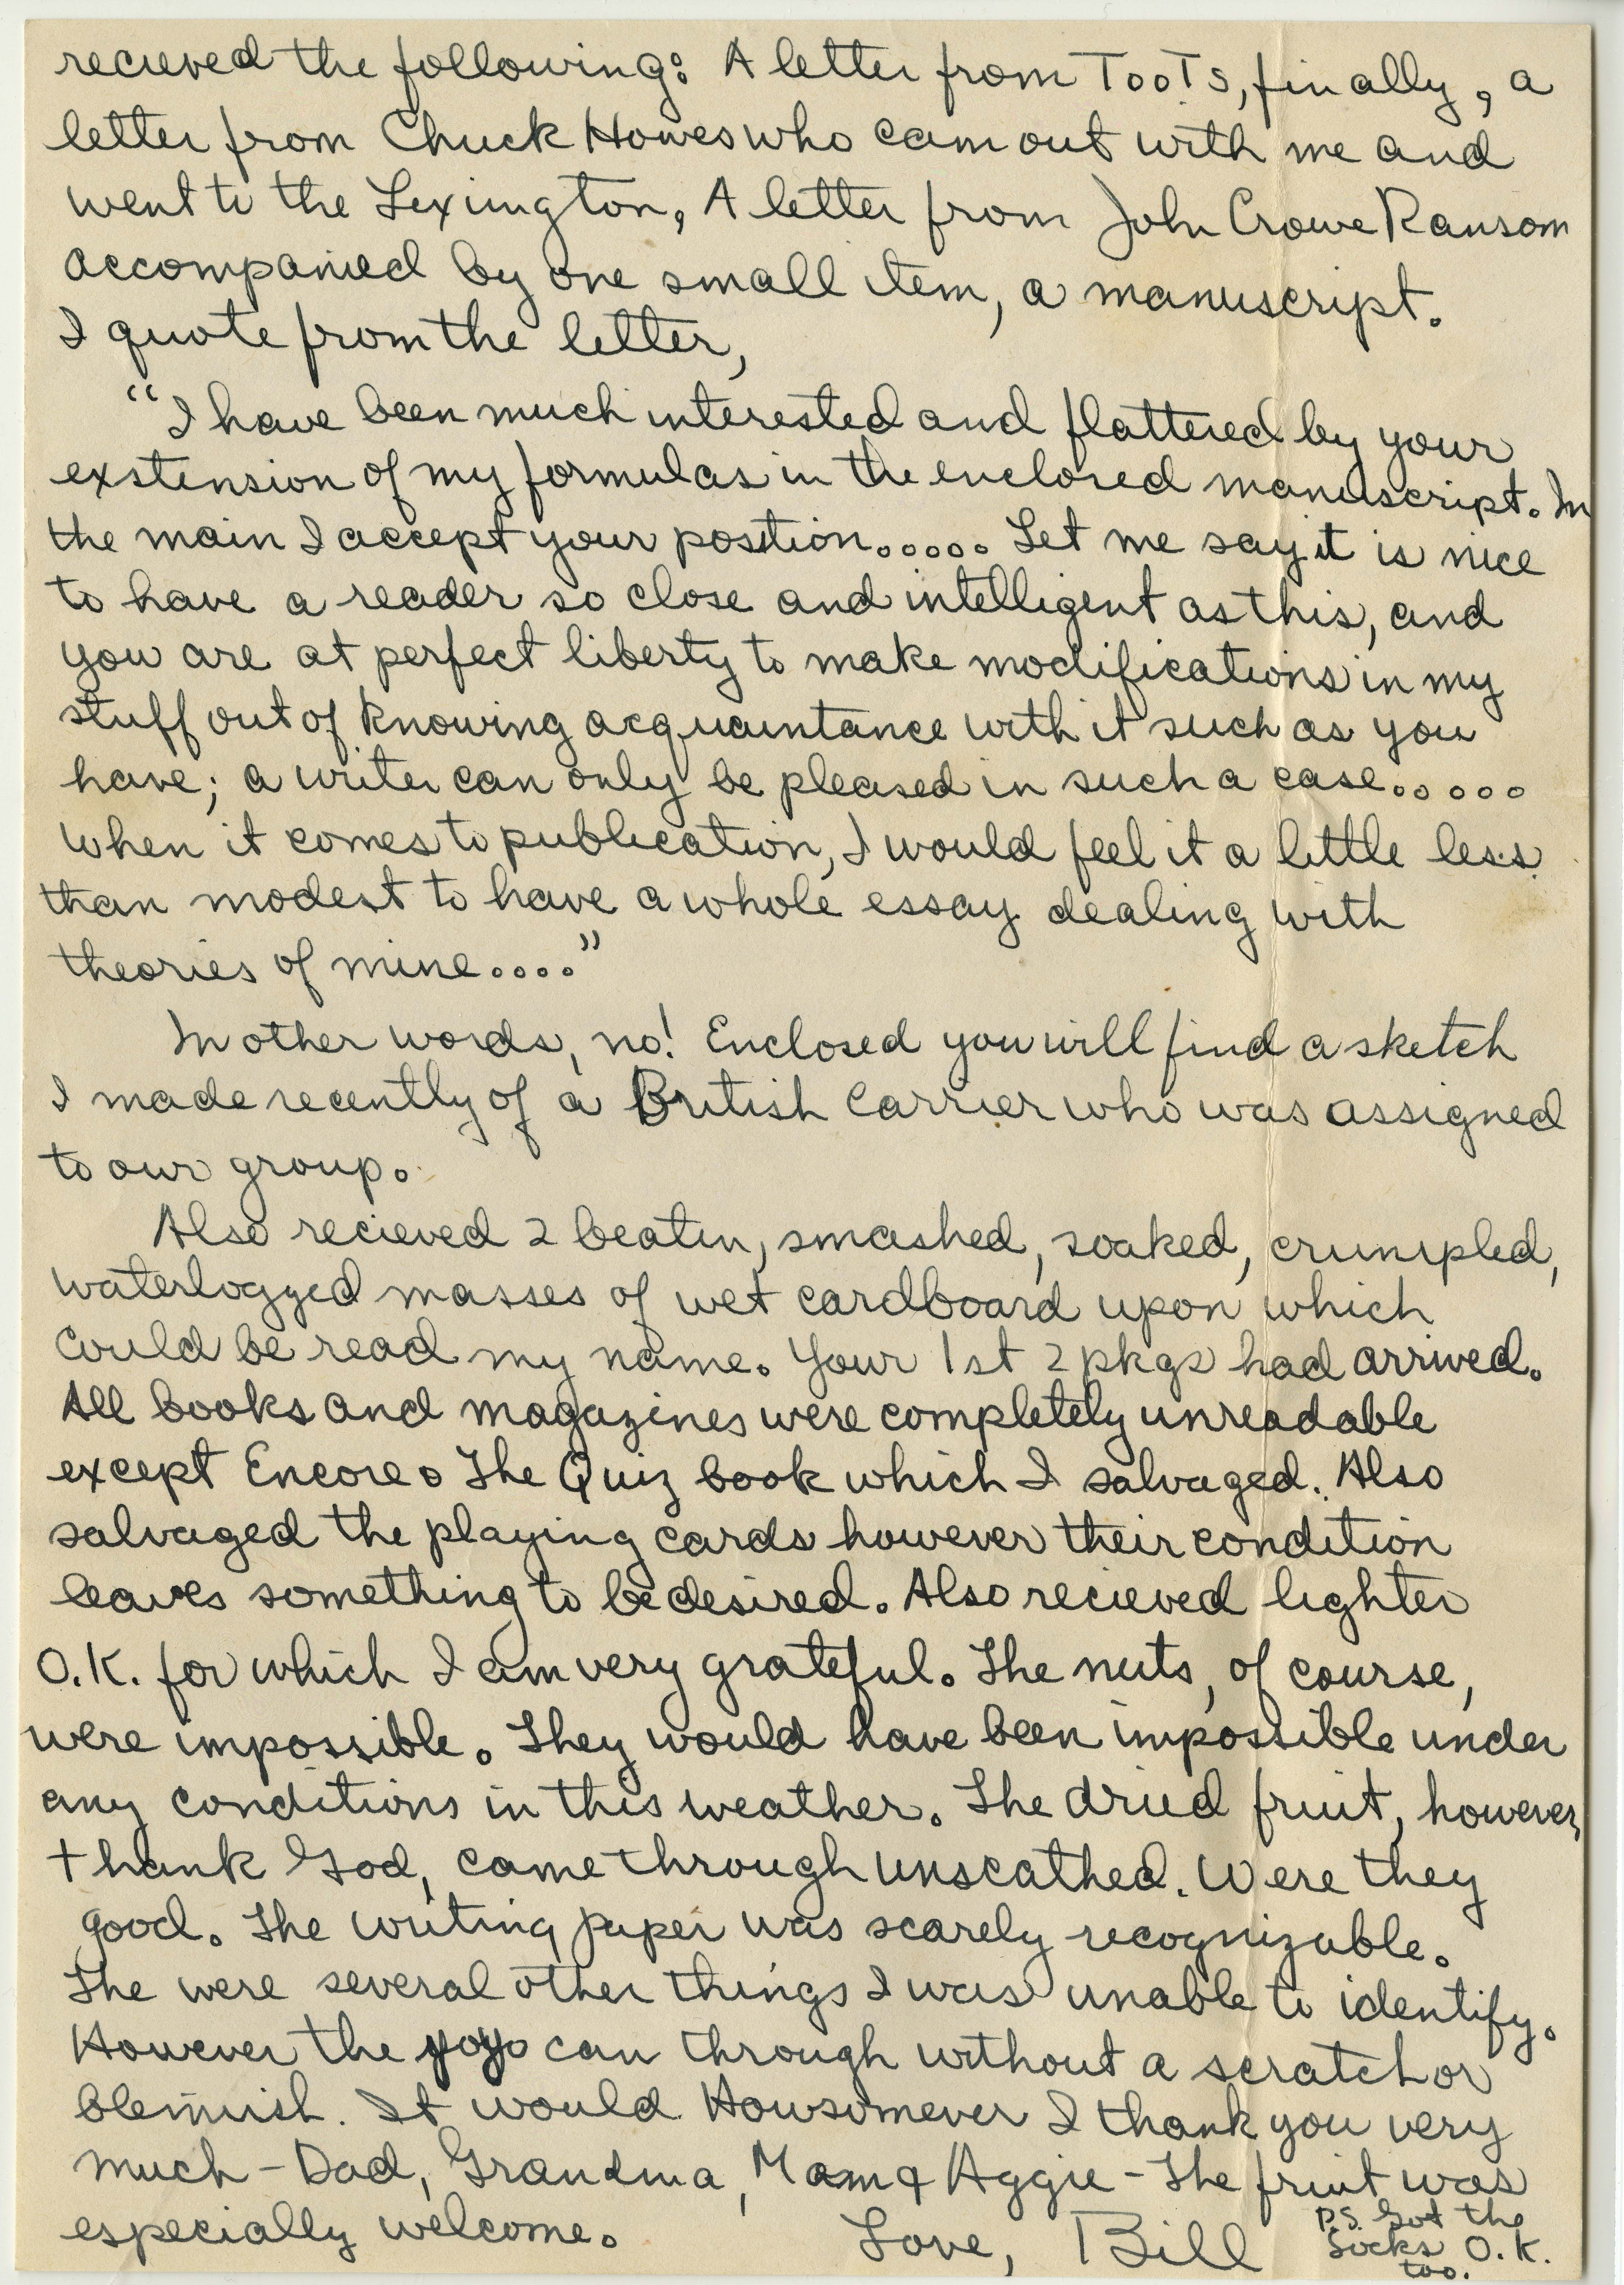 recieved the following: A letter from Toots, finally, a
letter from Chuck Howes who cam out with me and
went to the Lexington, A letter from John Crowe Ransom
accompanied by one small item, a manuscript.
I quote from the letter,
"I have been much interested and flattered by your
exstension of my formulas in the enclosed manuscript. In
the main I accept your position..... Let me say it is nice
to have a reader so close and intelligent as this, and
you are at perfect liberty to make modifications in my
stuff out of knowing acquaintance with it such as you
have; a writer can only be pleased in such a case.....
when it comes to publication, I would feel it a little less
than modest to have a whole essay dealing with
theories of mine...."
In other words, no! Enclosed you will find a sketch
I made recently of a British Carrier who was assigned
to our group.
Also recieved 2 beaten, smashed, soaked, crumpled,
waterlogged masses of wet cardboard upon which
could be read my name. Your 1st 2 pkgs had arrived.
All books and magazines were completely unreadable
except Encore & The Quiz book which I salvaged. Also
salvaged the playing cards however their condition
leaves something to be desired. Also recieved lighter
O.K. for which I am very grateful. The nuts, of course,
were impossible. They would have been impossible under
any conditions in this weather. The dried fruit, however,
thank God, came through unscathed. Were they
good. The writing paper was scarely recognizable.
The were several other things I was unable to identify.
However the yoyo can through without a scratch or
blemish. It would. Howsomever I thank you very
much - Dad, Grandma, Mam & Aggie - The fruit was
especially welcome. Love, Bill
P.S. Got the
Socks O.K.
too.